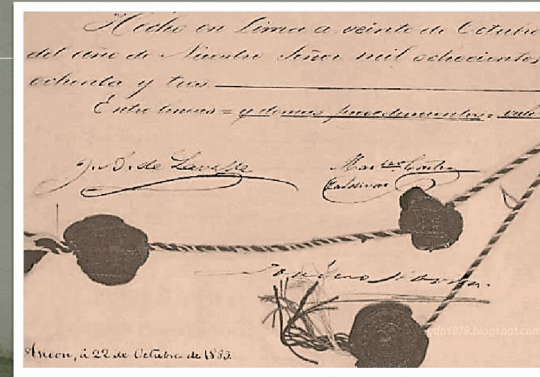 Hecho en Lima a veinte de Octubre
del año de Nuestro Señor mil ochocientos
ochenta y tres
Entre lineas = y demas procedimientos = vale
J. A. de Lavalle
Mar.no Castro
Zaldivar
gdp1879.blogspot.com
Ancon, à 22 de Octubre de 1883.